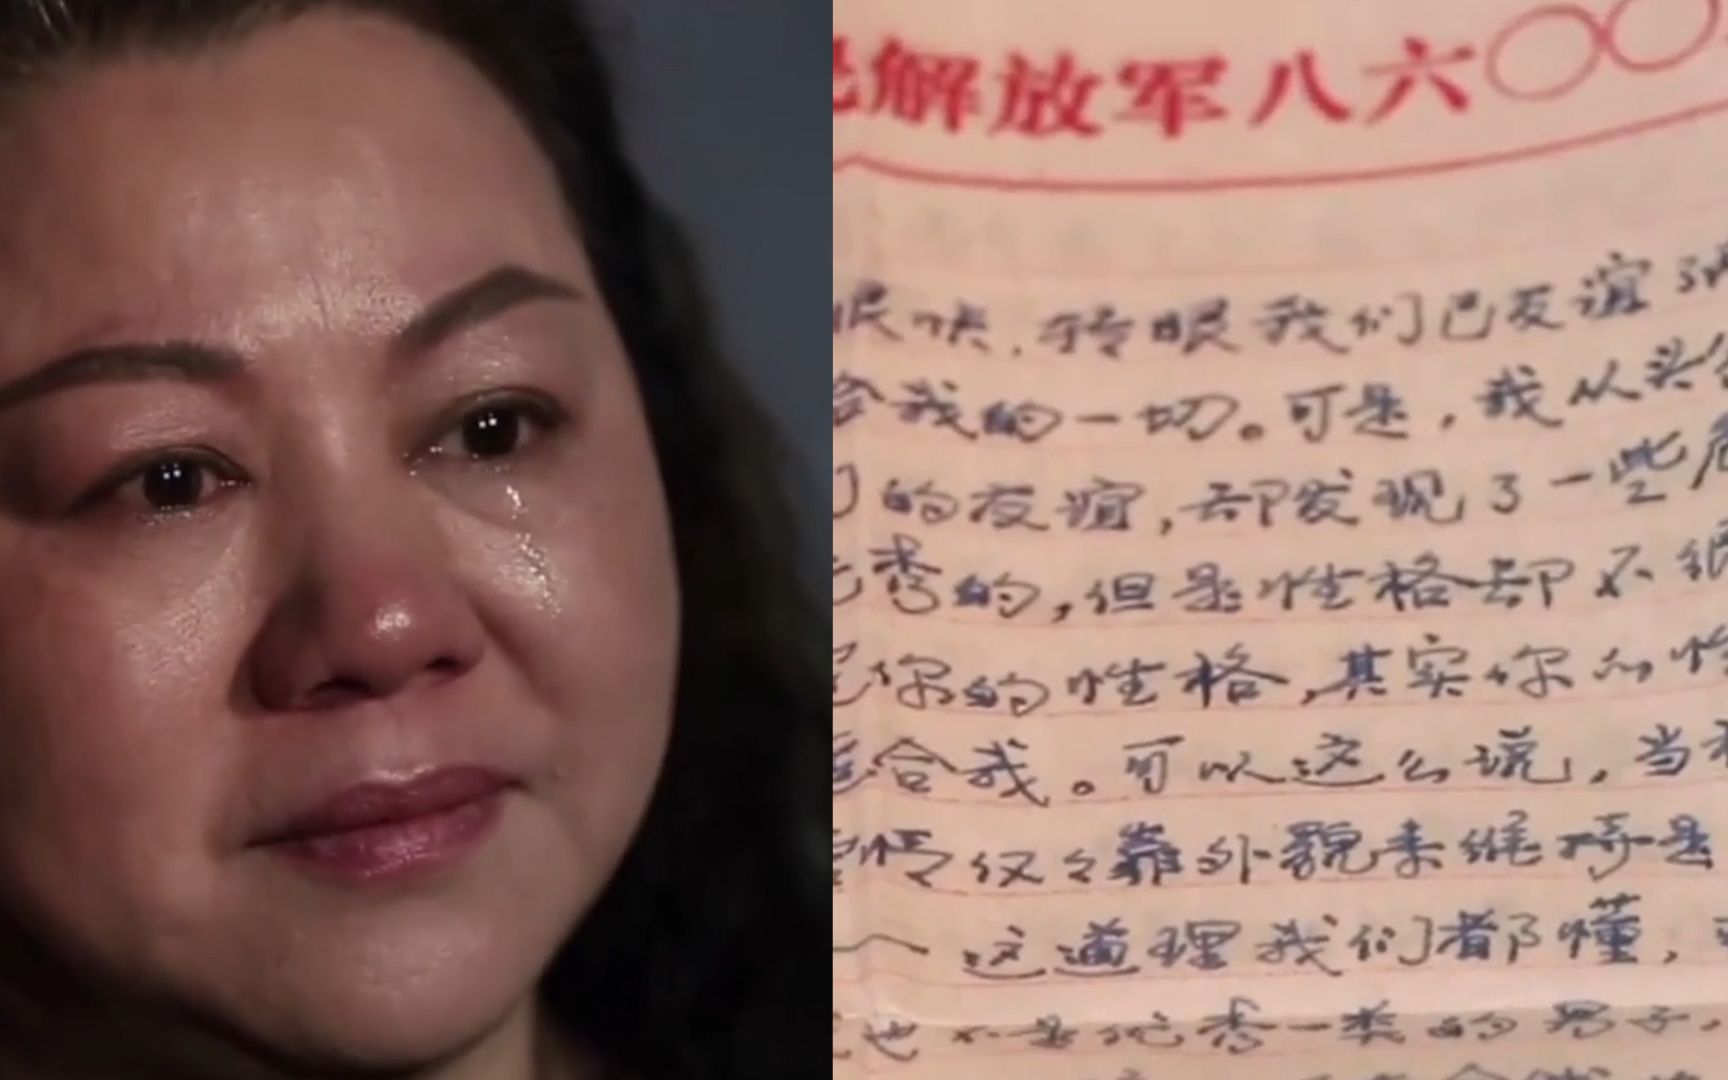 解放军八六〇〇
很快，转眼我们已友谊了
合我的一切。可是，我从头
们的友谊，却发现了一些
优秀的，但是性格却不很
你的性格，其实你的性
适合我。可以这么说，当
爱情仅々靠外貌来维持是
这道理我们都懂，
也不是优秀一类的男子，